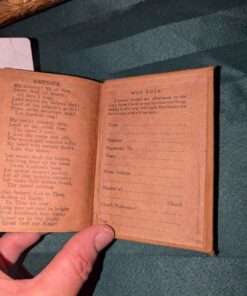 AMERICA
My country! 'tis of thee,
Sweet land of liberty,
Of thee I sing;
Land where my fathers died!
Land of the pilgrim's pride!
From every mountain side,
Let freedom ring!
My native country, thee,
Land of the noble free,
Thy name I love;
I love thy rocks and rills,
Thy woods and templed hills;
My heart with rapture thrills
Like that above.
Let music swell the breeze,
And ring from all the trees
Sweet freedom's song;
Let mortal tongues awake;
Let all that breathe partake;
Let rocks their silence break,
The sound prolong.
Our fathers' God to Thee,
Author of liberty,
To Thee we sing;
Long may our land be bright
With freedom's holy light;
Protect us by Thy might,
Great God our King!
WAR ROLL
Name
Regiment
Company
Home Address
Member of
Church
Church Preference?
Date